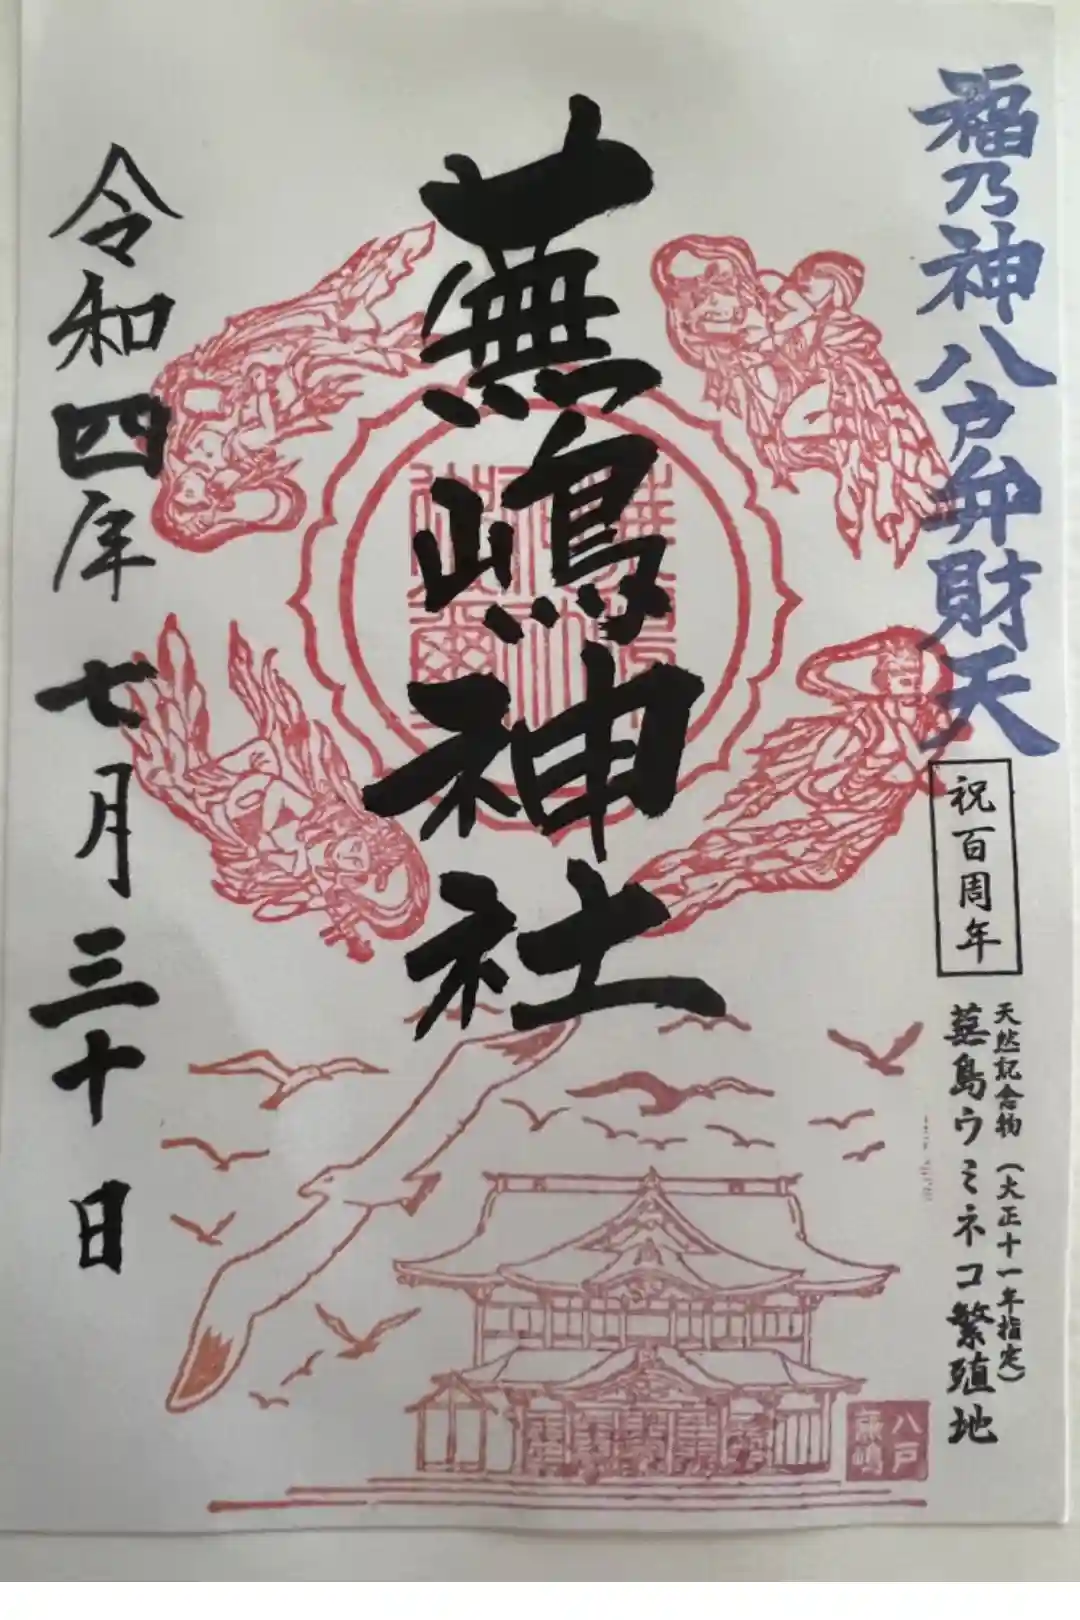 福乃神八戸弁財天
祝百周年
天然記念物（大正十一年指定）
蕪島ウミネコ繁殖地
蕪嶋神社
令和四年七月三十日
八戸
蕪嶋